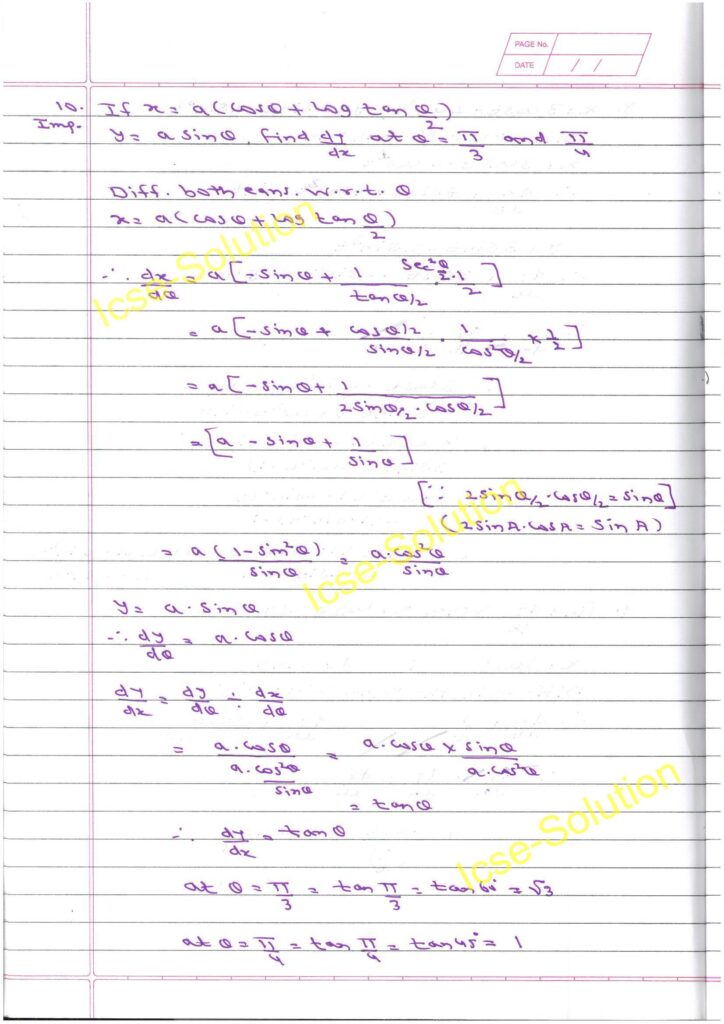 PAGE No.
DATE / /
10. If x = a(cosθ + log tan θ/2)
Imp. y = a sinθ, find dy/dx at θ = π/3 and π/4
Diff. both eqns. w.r.t. θ
x = a(cosθ + log tan θ/2)
∴ dx/dθ = a[-sinθ + 1/tanθ/2 · sec²θ/2 · 1/2]
= a[-sinθ + cosθ/2/sinθ/2 · 1/cos²θ/2 × 1/2]
= a[-sinθ + 1/2sinθ/2 · cosθ/2]
= [a - sinθ + 1/sinθ]
[∵ 2sinθ/2 · cosθ/2 = sinθ]
(2sinA·cosA = sinA)
= a(1-sin²θ)/sinθ = a·cos²θ/sinθ
y = a · sinθ
∴ dy/dθ = a · cosθ
dy/dx = dy/dθ ÷ dx/dθ
= a·cosθ/a·cos²θ/sinθ = a·cosθ × sinθ/a·cos²θ
= tanθ
∴ dy/dx = tanθ
at θ = π/3 = tan π/3 = tan 60° = √3
at θ = π/4 = tan π/4 = tan 45° = 1
Icse-Solution
Icse-Solution
Icse-Solution